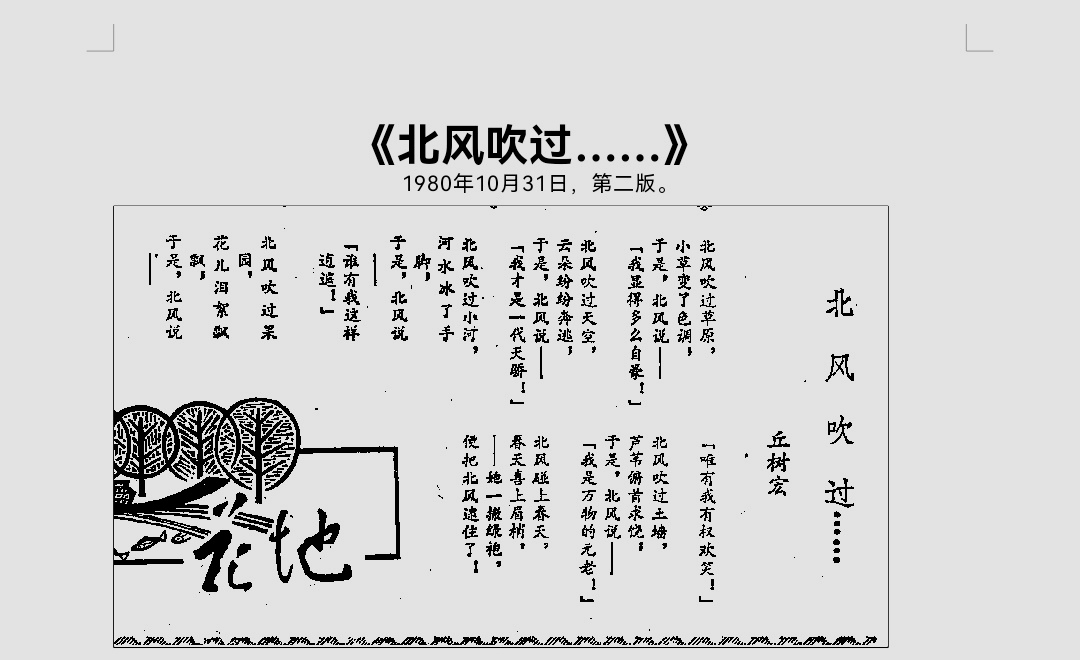 《北风吹过……》
1980年10月31日，第二版。
北风吹过……
丘树宏
北风吹过草原，
小草变了色调，
于是，北风说——
「我显得多么自豪！」
北风吹过天空，
云朵纷纷奔逃，
于是，北风说——
「我才是一代天骄！」
北风吹过小河，
河水冰了手
脚，
于是，北风说
——
「谁有我这样
逍遥！」
北风吹过果
园，
花儿泪絮飘
飘，
于是，北风说
——
「唯有我有权欢笑！」
北风吹过土墙，
芦苇俯首求饶，
于是，北风说——
「我是万物的元老！」
北风碰上春天，
春天喜上眉梢，
——她一撒绿袍，
便把北风逮住了！
花地